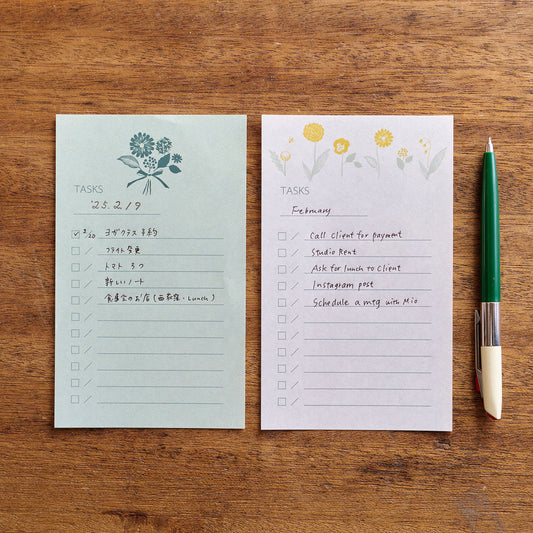 TASKS
'25. 2. 19
2/20 ヨガクラス 予約
フライト変更
トマト 3つ
新しいノート
食事会のお店 (西荻窪・Lunch)
TASKS
February
Call Client for payment
Studio Rent
Ask for lunch to Client
Instagram post
Schedule a mtg with Mio